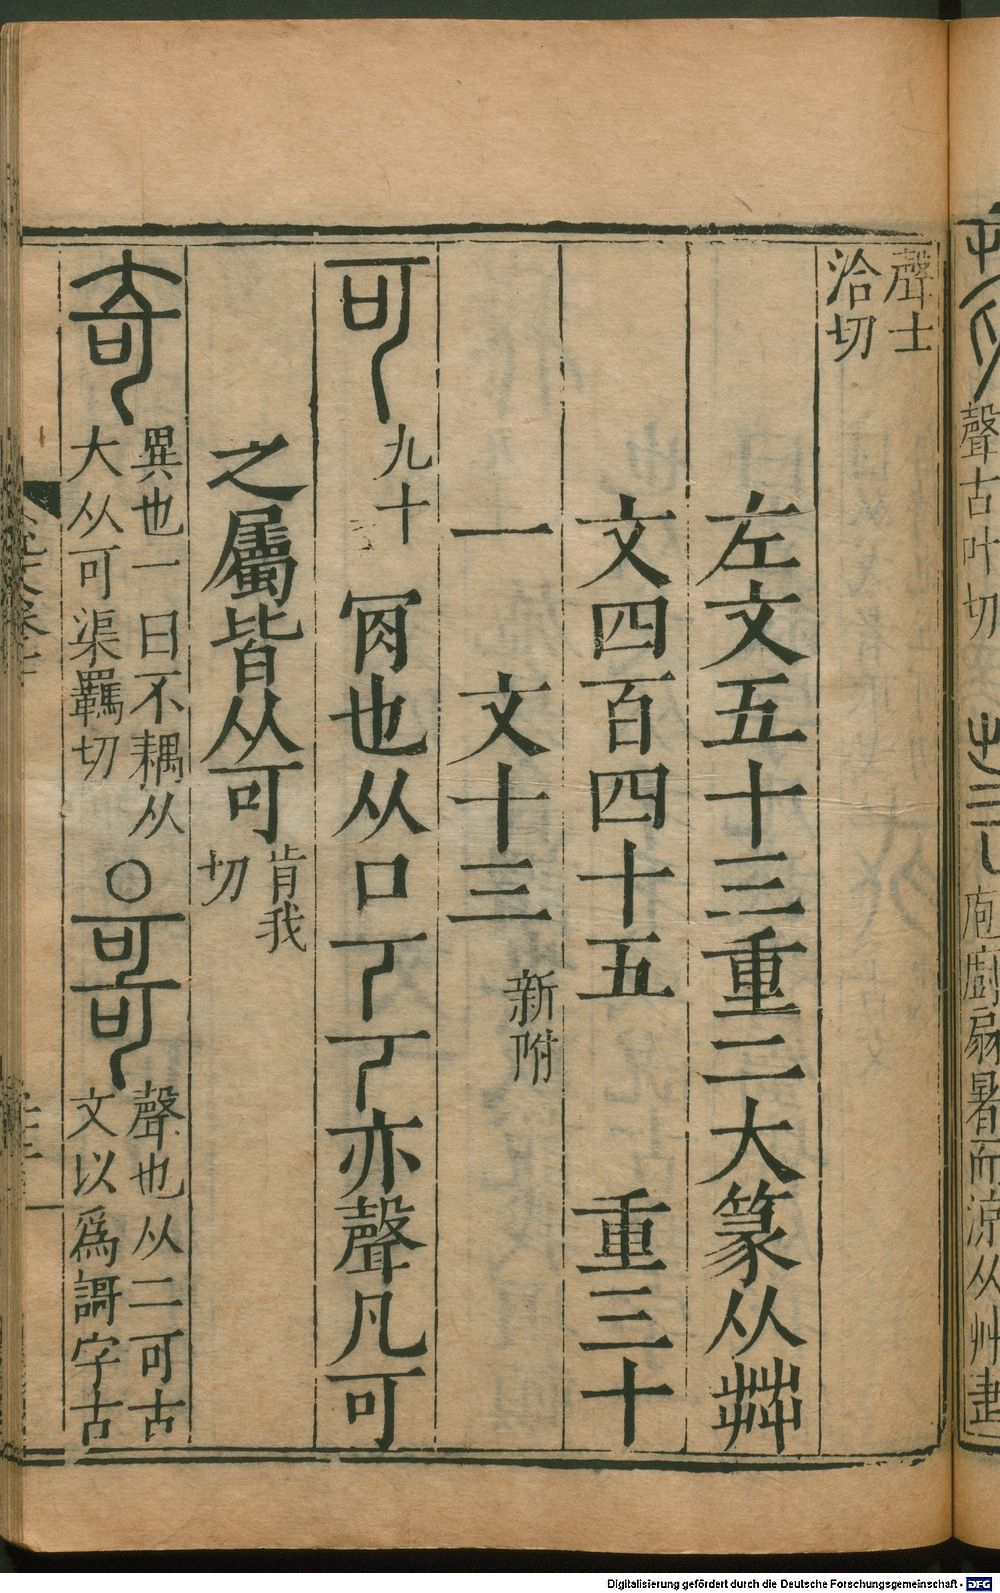 聲古叶切
庖廚扇暑而涼从艸疌
聲士
洽切
左文五十三重二大篆从茻
文四百四十五　重三十
一　文十三新附
可九十　肎也从口𠀀𠀀亦聲凡可
之屬皆从可肯我
切
奇異也一曰不耦从
大从可渠羈切
○哥聲也从二可古
文以爲謌字古
Digitalisierung gefördert durch die Deutsche Forschungsgemeinschaft - DFG